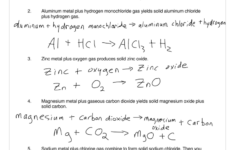 2. Aluminum plus hydrogen monochloride gas yields solid aluminum chloride
plus hydrogen gas.
aluminum + hydrogen monochloride → aluminum chloride + hydrogen
Al + HCl → AlCl₃ + H₂
3. Zinc metal plus oxygen gas produces solid zinc oxide.
Zinc + oxygen → Zinc oxide
Zn + O₂ → ZnO
4. Magnesium metal plus gaseous carbon dioxide yields solid magnesium oxide plus
solid carbon.
magnesium + carbon dioxide → magnesium oxide + Carbon
Mg + CO₂ → MgO + C
5. Sodium metal plus chlorine gas combine to form solid sodium chloride. Then you